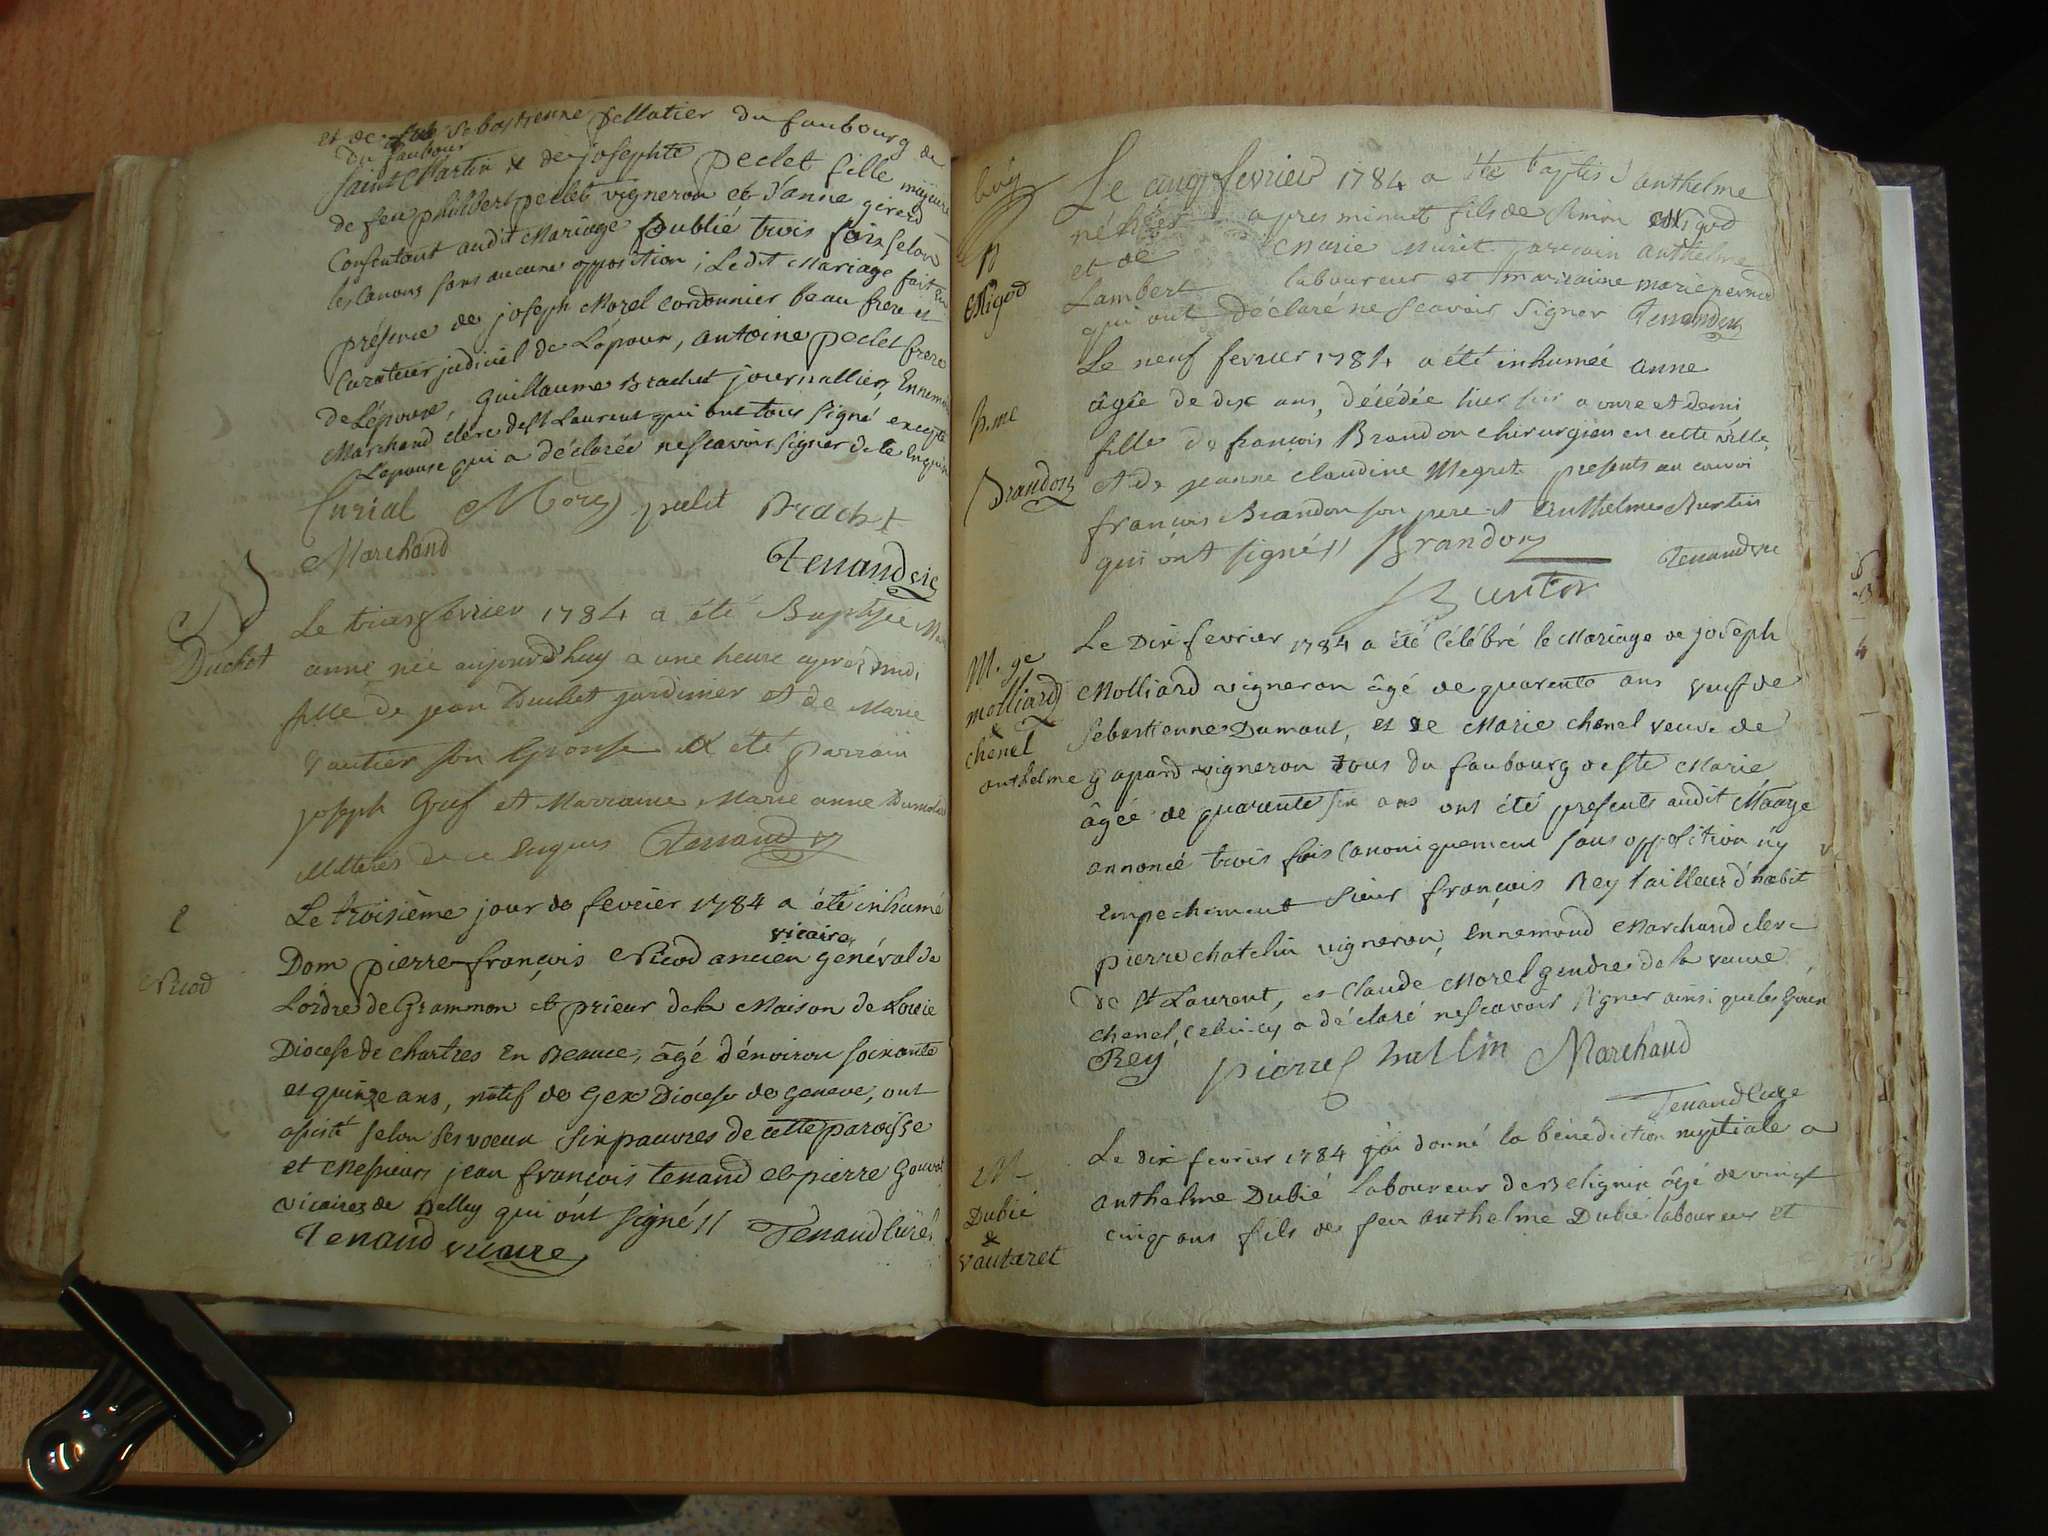 et de Sebastienne pellatier du faubourg de
du faubour
saint Martin & de josephte peclet fille majeure
de feu philibert peclet vigneron et d'anne girerd
Consentant audit Mariage publié trois fois selon
les Canons sans aucune opposition ; Le dit Mariage fait en
présence de joseph Morel Cordonnier beau frere et
Curateur judiciel de L'époux, antoine peclet frere
de L'épouse, guillaume Brachet journallier, Ennemond
Marchand clerc de St Laurent qui ont tous signé excepté
L'epouse qui a déclarée ne scavoir signer de ce Enquise
Curial Morel peclet Brachet
Marchand
Tenand vic
B
Duchet
Le trois fevrier 1784 a été Baptisée Marie
anne née aujourd'huy a une heure apres midi
fille de jean Duchet jardinier et de Marie
Vautier son Epouse a été parrain
joseph Gref et Marraine Marie anne Dumolin
illiterés de ce enquis Tenand v
Nicod
Le troisième jour de fevrier 1784 a été inhumé
vicaire
Dom pierre françois Nicod ancien général de
Lordre de Grammon et prieur de la Maison de Louie
Diocese de chartres En Beauce, âgé d'environ soixante
et quinze ans, natif de Gex Diocese de Geneve, ont
assisté selon ses voeux six pauvres de cette paroisse
et Messieurs jean françois tenand et pierre Gouvot
vicaires de Belley qui ont signé //
Tenand Curé
Tenand vicaire
B
Migod
Le cinq fevrier 1784 a été baptisé anthelme
né hier apres minuit fils de Simon Migod
et de Marie Muret parrain anthelme
Lambert laboureur et marraine marie pernod
qui ont déclaré ne scavoir signer Tenand v
Brandon
Le neuf fevrier 1784 a été inhumée anne
âgée de dix ans, décédée hier soir a onze et demi
fille de françois Brandon chirurgien en cette ville
et de jeanne claudine Megret presents au convoi
françois Brandon son pere et Anthelme Burtin
qui ont signé // Brandon
Tenand vic
Burtin
M.ge
Molliard
&
chenel
Le Dix fevrier 1784 a été Célébré le Mariage de joseph
Molliard vigneron âgé de quarente ans veuf de
Sebastienne Dumont, et de Marie chenel veuve de
anthelme gapard vigneron tous du faubourg de Ste Marie
âgée de quarente six ans ont été presents audit Maage
annoncé trois fois Canoniquement sans opposition n'y
Empechement sieur françois Rey tailleur d'habit
pierre chatelin vigneron, Ennemond Marchand clerc
de St Laurent, et Claude Morel gendre de la veuve
chenel, celui-cy a déclaré ne scavoir signer ainsi que les Epoux
Rey pierre Chatllin Marchand
Tenand Curé
M
Dubié
&
vautaret
Le dix fevrier 1784 j'ai donné la bénédiction nuptiale a
anthelme Dubié laboureur de Belignin âgé de vingt
cinq ans fils de feu anthelme Dubié laboureur et